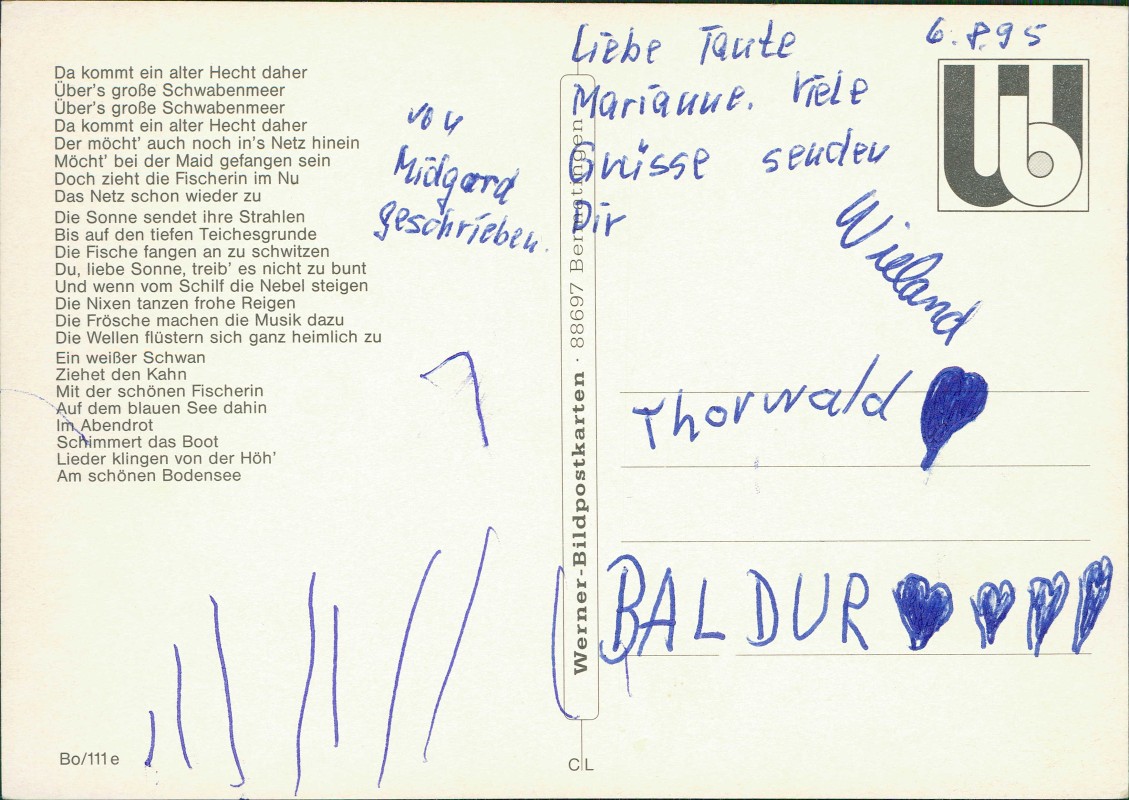 Da kommt ein alter Hecht daher
Über's große Schwabenmeer
Über's große Schwabenmeer
Da kommt ein alter Hecht daher
Der möcht' auch noch in's Netz hinein
Möcht' bei der Maid gefangen sein
Doch zieht die Fischerin im Nu
Das Netz schon wieder zu
Die Sonne sendet ihre Strahlen
Bis auf den tiefen Teichesgrunde
Die Fische fangen an zu schwitzen
Du, liebe Sonne, treib' es nicht zu bunt
Und wenn vom Schilf die Nebel steigen
Die Nixen tanzen frohe Reigen
Die Frösche machen die Musik dazu
Die Wellen flüstern sich ganz heimlich zu
Ein weißer Schwan
Ziehet den Kahn
Mit der schönen Fischerin
Auf dem blauen See dahin
Im Abendrot
Schimmert das Boot
Lieder klingen von der Höh'
Am schönen Bodensee
Bo/111e
von
Midgard
geschrieben.
Werner-Bildpostkarten · 88697 Bermatingen
CL
6.8.95
Liebe Tante
Marianne. Viele
Grüsse senden
Dir
Wieland
Thorwald
BALDUR